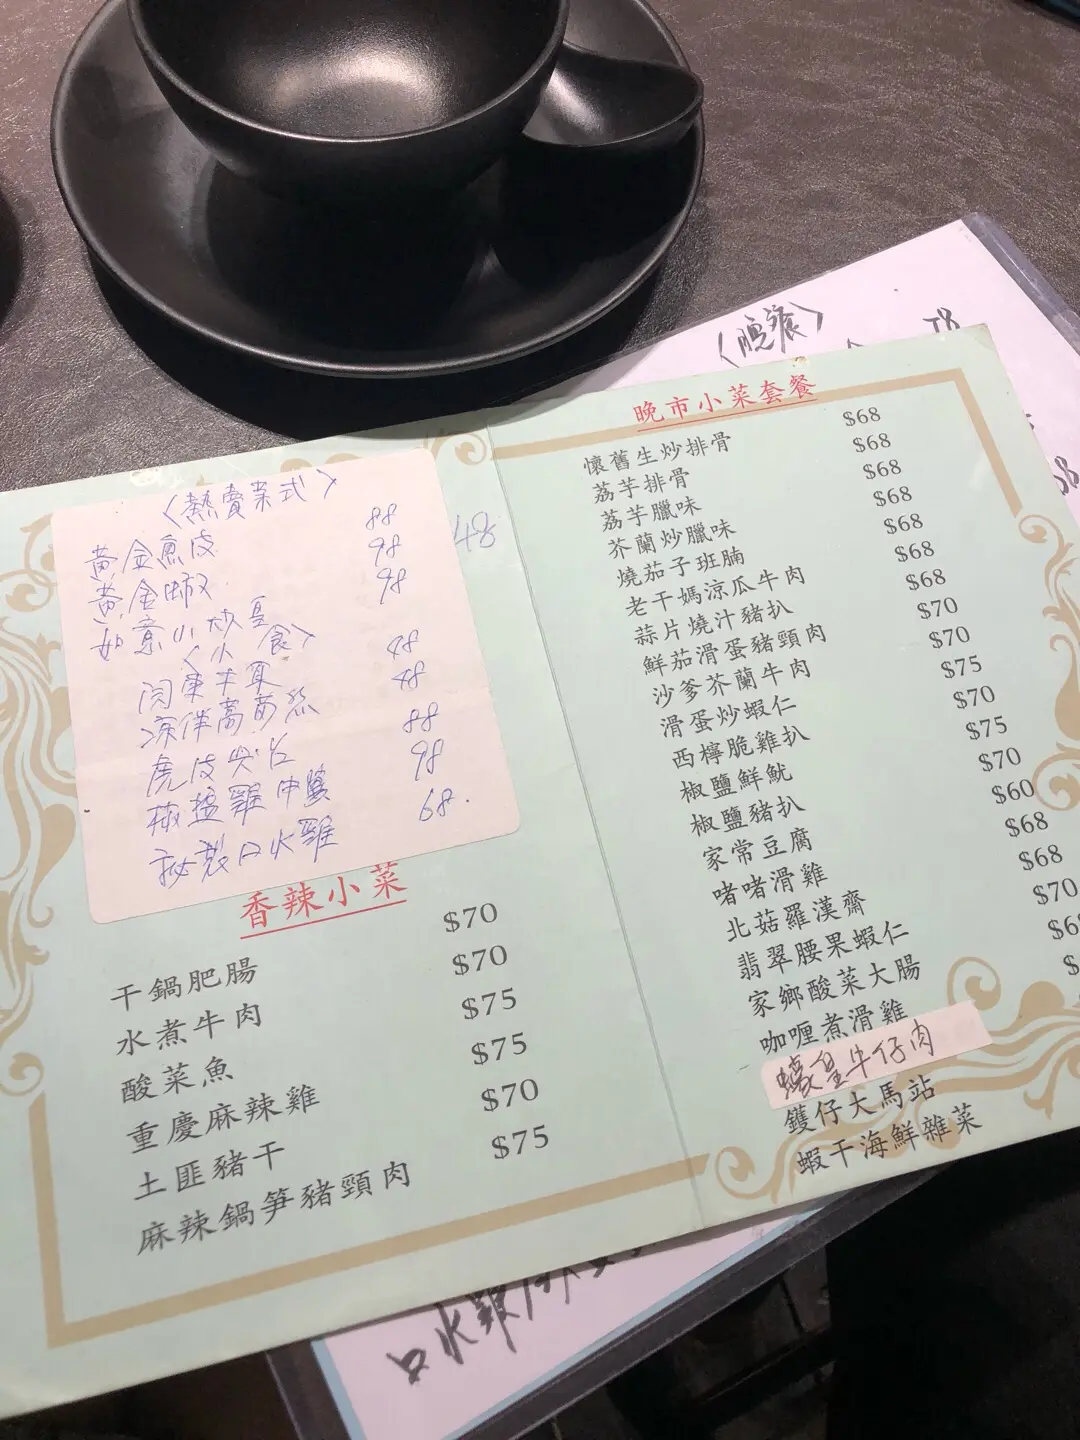 〈晚餐〉
58
〈熱賣菜式〉
黃金魚皮 88
黃金 98
如意小炒皇 98
〈小食〉
關東牛耳 48
涼伴萵苣絲 48
虎皮尖 88
椒鹽雞中 98
秘製口水雞 68.
48
香辣小菜
干鍋肥腸 $70
水煮牛肉 $70
酸菜魚 $75
重慶麻辣雞 $75
土匪豬干 $70
麻辣鍋笋豬頸肉 $75
晚市小菜套餐
懷舊生炒排骨 $68
荔芋排骨 $68
荔芋臘味 $68
芥蘭炒臘味 $68
燒茄子班腩 $68
老干媽涼瓜牛肉 $68
蒜片燒汁豬扒 $68
鮮茄滑蛋豬頸肉 $70
沙爹芥蘭牛肉 $70
滑蛋炒蝦仁 $75
西檸脆雞扒 $70
椒鹽鮮魷 $75
椒鹽豬扒 $70
家常豆腐 $60
啫啫滑雞 $68
北菇羅漢齋 $68
翡翠腰果蝦仁 $70
家鄉酸菜大腸
咖喱煮滑雞
蠔皇牛仔肉
鑊仔大馬站
蝦干海鮮雜菜
口水雞